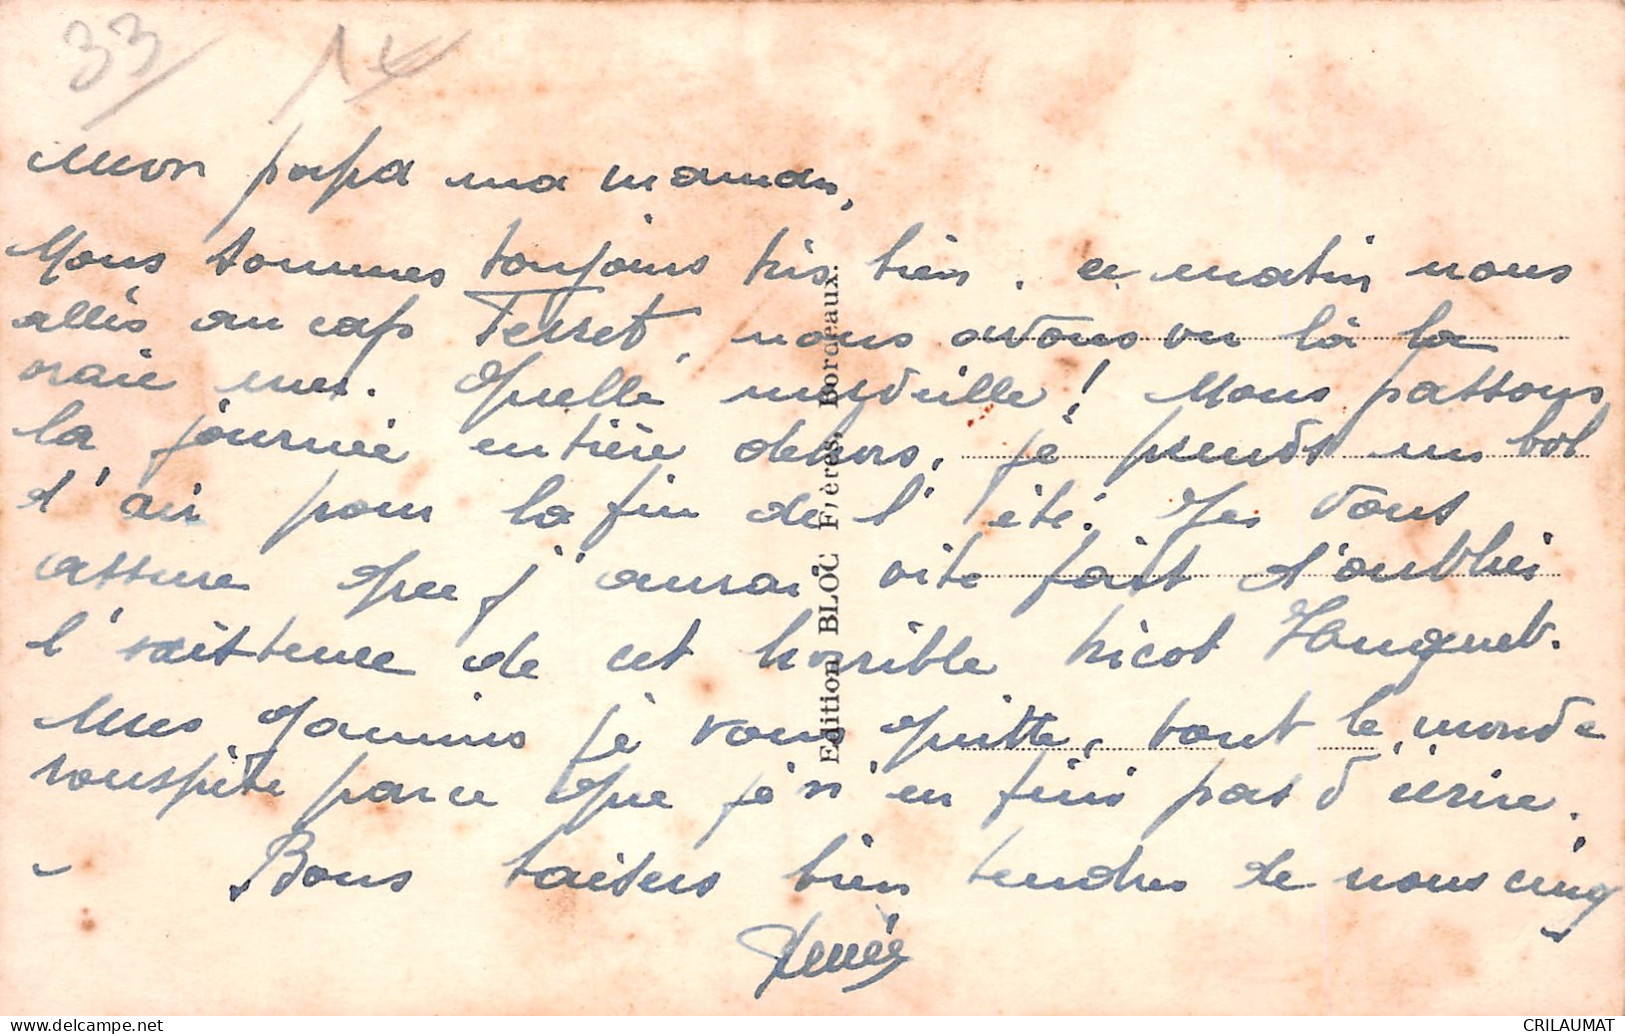 33 14
Mon papa ma maman,
Nous sommes toujours très bien. ce matin nous
allés au cap Ferret, nous avons vu là la
vraie mer. Quelle merveille! Nous passons
la journée entière dehors, je prends un bol
d'air pour la fin de l'été. Je vous
assure que j'aurai vite fait d'oublier
l'existence de cet horrible tricot
Mes gamins je vous quitte, tout le monde
rouspète parce que je n'en finis pas d'écrire.
Bons baisers bien tendres de nous cinq
Renée
Edition BLOC Frères, Bordeaux.
delcampe.net
CRILAUMAT